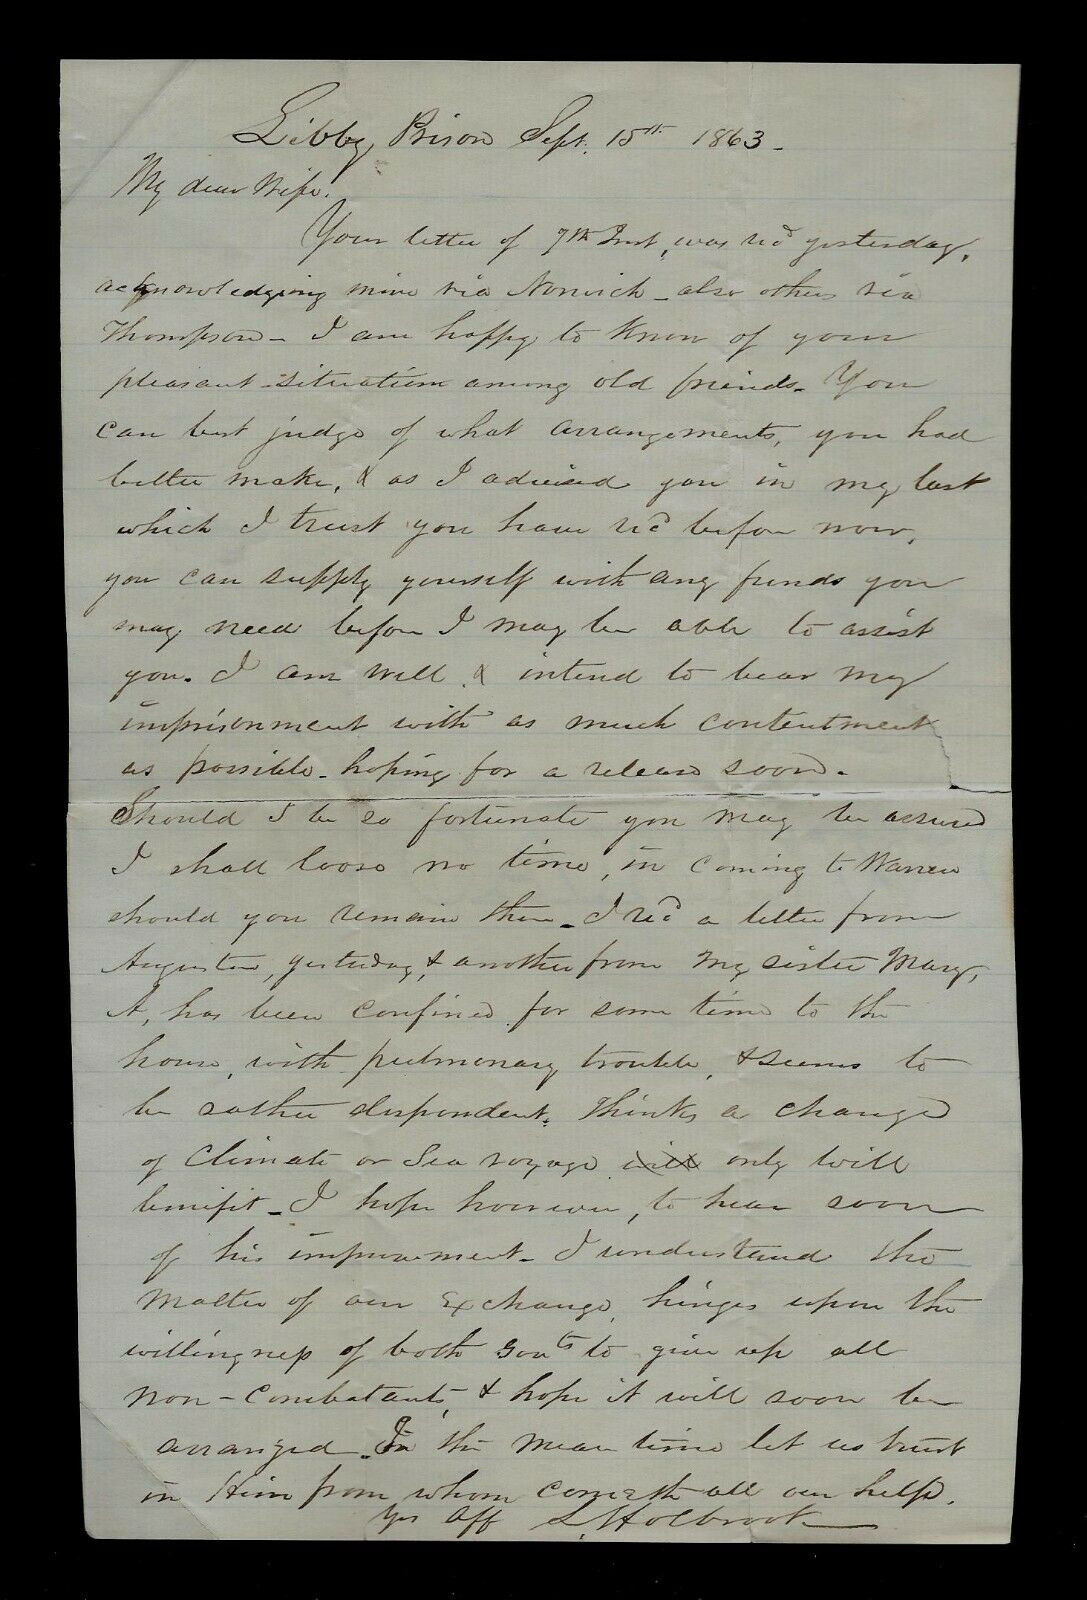 Libby Prison Sept. 15th 1863.
My dear Wife.
Your letter of 7th Inst, was recd yesterday,
acknowledging mine via Norwich - also others via
Thompson - I am happy to know of your
pleasant situation among old friends. You
can best judge of what arrangements, you had
better make, & as I advised you in my last
which I trust you have recd before now,
you can supply yourself with any funds you
may need before I may be able to assist
you. I am well & intend to bear my
imprisonment with as much contentment
as possible - hoping for a release soon.
Should I be so fortunate you may be assured
I shall loose no time, in coming to Warren
should you remain there - I recd a letter from
Augustus, yesterday, & another from my sister Mary,
A, has been confined for some time to the
house, with pulmonary trouble, & seems to
be rather despondent. Thinks a change
of Climate or Sea voyage will only will
benifit - I hope however, to hear soon
of his improvement - I understand the
matter of our Exchange, hinges upon the
willingness of both Govts to give up all
non-combatants, & hope it will soon be
arranged. In the mean time let us trust
in Him from whom cometh all our help.
Yrs Aff S. Holbrook